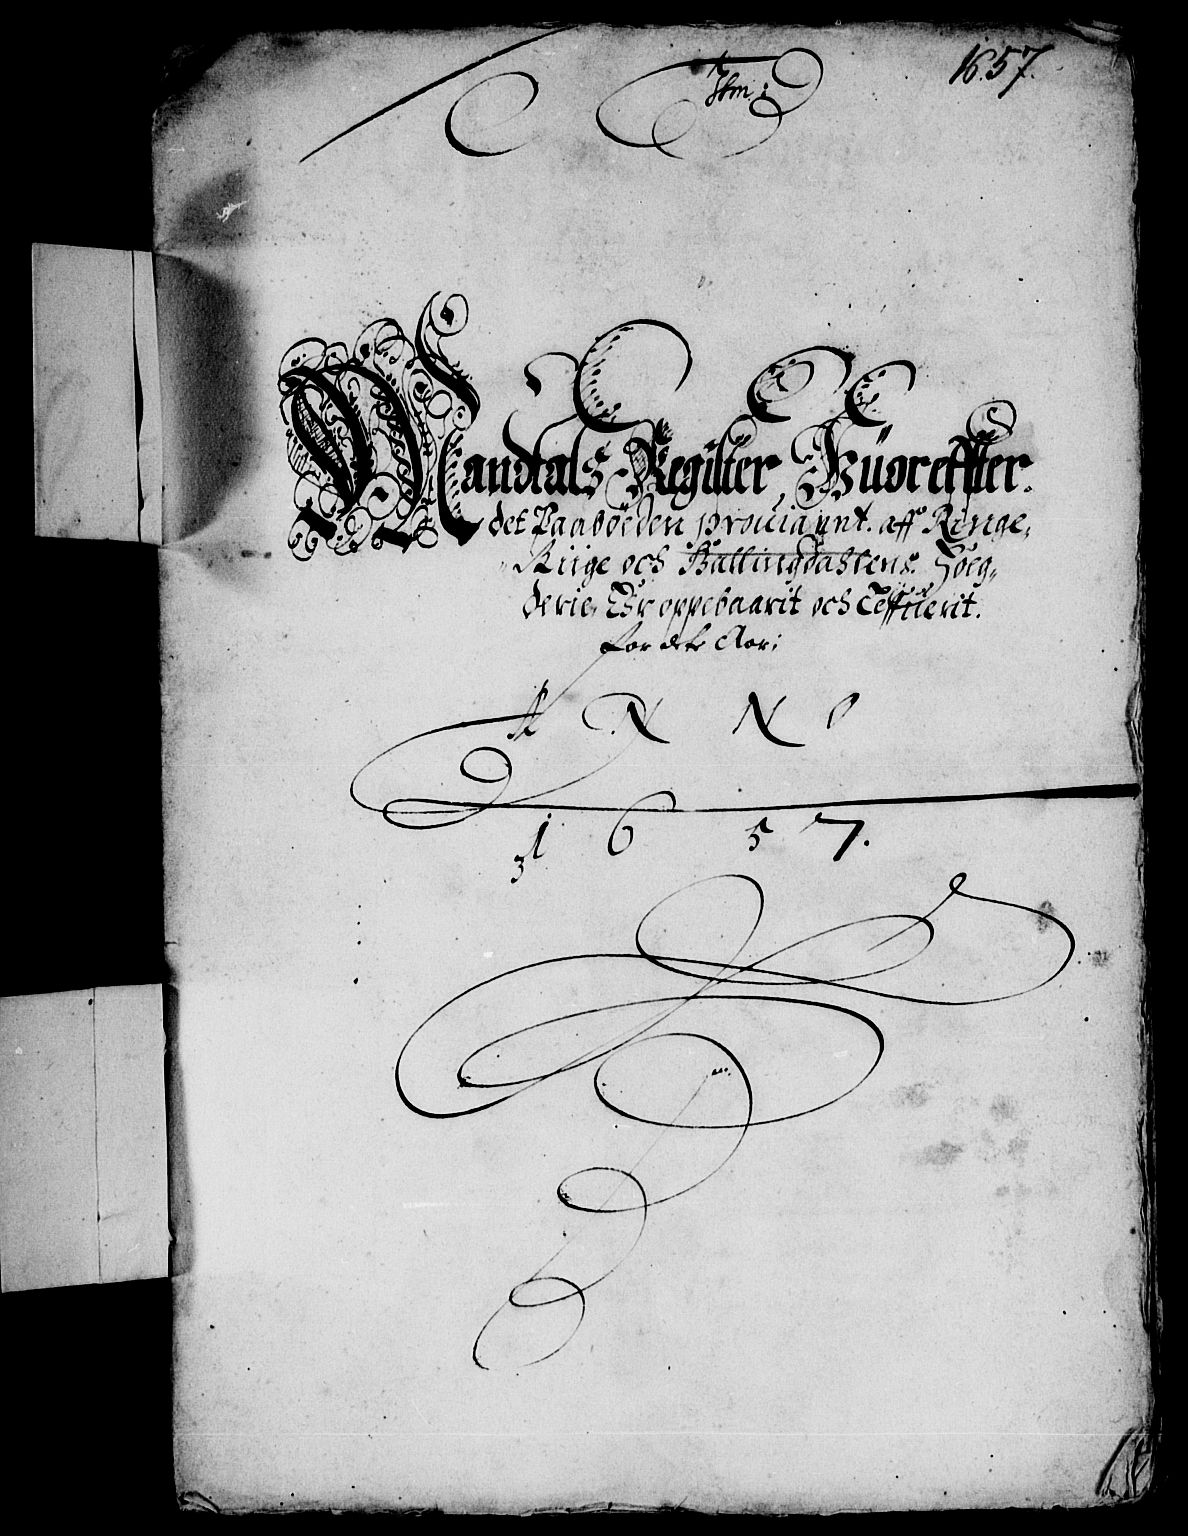 1657.
Mandtals Register, Huoreffter.
det Paaböeden prouiannt. aff Ringe,
Riige och Hallingdahlens. Foeg,
derie, Er oppebaarit och Leffuerit.
for dete Aar;
A N N O
1 6 5 7.
3